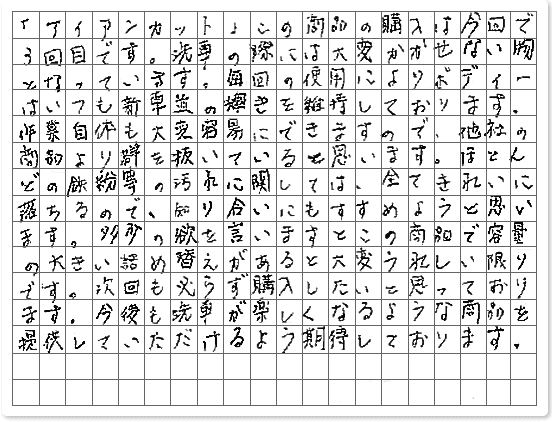 「アイアンカット」この商品の購入は今回で
3回目です。洗車の際には大変かかせない物
となっています。毎回の使用によりボディー
はいつも新車並の輝きを維持しております。
作業自体も大変容易にできますので、他社の
商品より群を抜いていると思います。ほとん
どの鉄粉等の汚れに関しては、全てきれいに
落ちるので、知り合いにもすすめようと思い
ます。多少の欲を言いますとこの商品で容量
の大きい詰め替えがあると大変うれしい限り
です。次回も必らず購入したいと思っており
ます。今後も洗車が楽しくなるような商品を
提供していただけるよう期待しております。